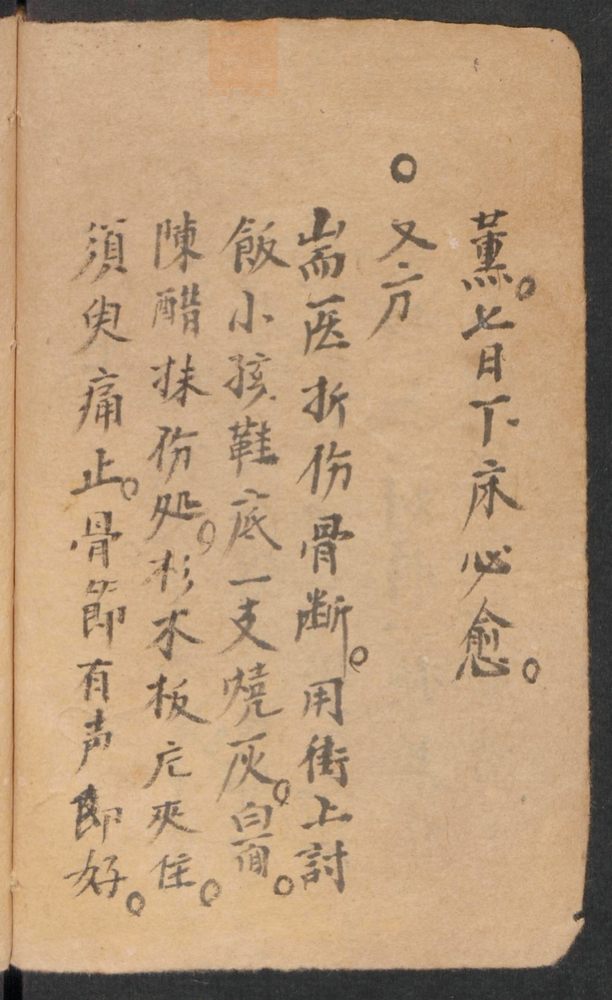 薫。七日下床必愈。
○又方
耑医折伤骨断。用街上討
飯小孩鞋底一支燒灰。白面。
陳醋抹伤处。杉木板 夾住。
須臾痛止。骨節有声即好。